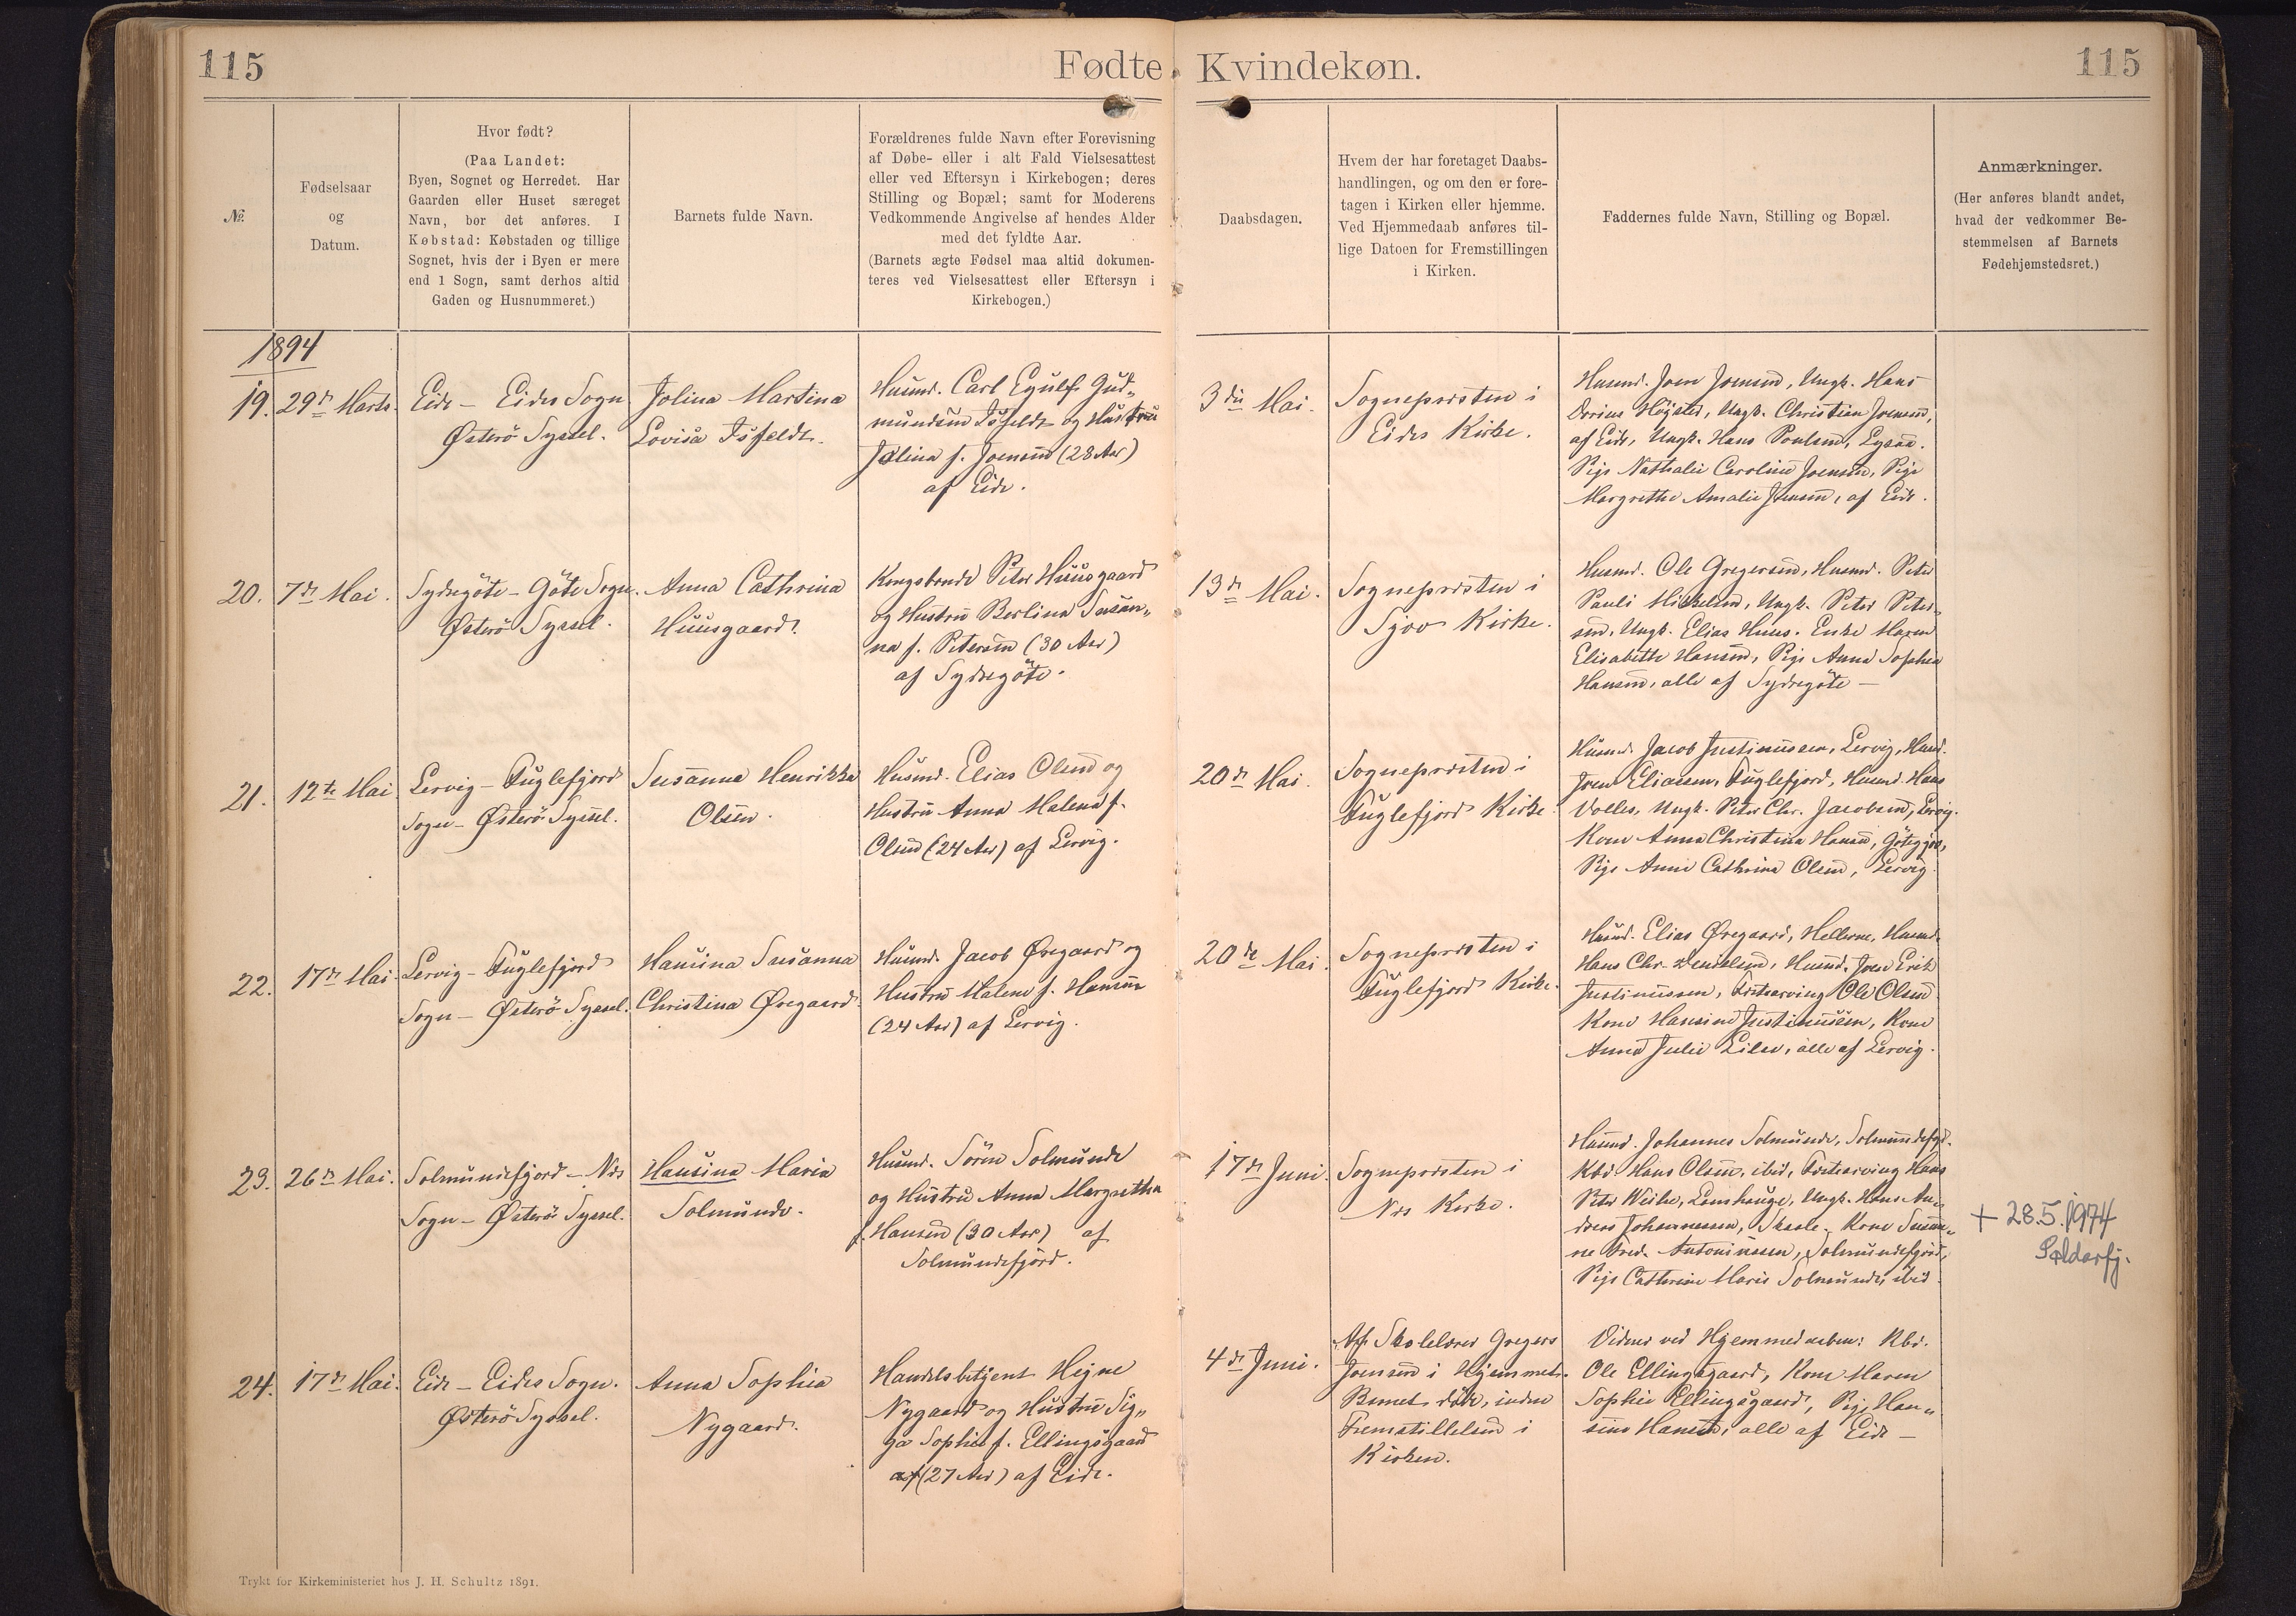 115
Fødte
Kvindekøn.
115
№.
Fødselsaar
og
Datum.
Hvor født?
(Paa Landet:
Byen, Sognet og Herredet. Har
Gaarden eller Huset særeget
Navn, bør det anføres. I
Købstad: Købstaden og tillige
Sognet, hvis der i Byen er mere
end 1 Sogn, samt derhos altid
Gaden og Husnummeret.)
Barnets fulde Navn.
Forældrenes fulde Navn efter Forevisning
af Døbe- eller i alt Fald Vielsesattest
eller ved Eftersyn i Kirkebogen; deres
Stilling og Bopæl; samt for Moderens
Vedkommende Angivelse af hendes Alder
med det fyldte Aar.
(Barnets ægte Fødsel maa altid dokumen-
teres ved Vielsesattest eller Eftersyn i
Kirkebogen.)
Daabsdagen.
Hvem der har foretaget Daabs-
handlingen, og om den er fore-
tagen i Kirken eller hjemme.
Ved Hjemmedaab anføres til-
lige Datoen for Fremstillingen
i Kirken.
Faddernes fulde Navn, Stilling og Bopæl.
Anmærkninger.
(Her anføres blandt andet,
hvad der vedkommer Be-
stemmelsen af Barnets
Fødehjemstedsret.)
1894
19.
29de Marts.
Eide – Eides Sogn
Østerö Syssel.
Jolina Martina
Lovisa Isfeldt.
Husmd. Carl Egulf Gud-
mundsen Isfeldt og Hustru
Jolina f. Joensen (28 Aar)
af Eide.
3die Mai.
Sognepræsten i
Eides Kirke.
Husmd. Joen Joensen, Ungk. Hans
Højsted, Ungk. Christian Joensen,
af Eide, Ungk. Hans Poulsen,
Pige Nathalie Caroline Joensen, Pige
Margrethe Amalie Joensen, af Eide.
20.
7de Mai.
Sydregöte – Göte Sogn.
Østerö Syssel.
Anna Cathrina
Huusgaard.
Kongsbonde Peter Huusgaard
og Hustru Berlina Susan-
na f. Petersen (30 Aar)
af Sydregöte.
13de Mai.
Sognepræsten i
Sjov Kirke.
Husmd. Ole Gregersen, Husmd. Peter
Pauli Mikkelsen, Ungk. Peter Peter-
sen, Ungk. Elias Huus. Enke Maren
Elisabeth Hansen, Pige Anna Sophia
Hansen, alle af Sydregöte –
21.
12te Mai
Lervig – Fuglefjord
Sogn – Østerö Syssel.
Susanna Henrikka
Olsen.
Husmd. Elias Olsen og
Hustru Anna Malena f.
Olsen (24 Aar) af Lervig.
20de Mai.
Sognepræsten i
Fuglefjord Kirke.
Husmd. Jacob Justinussen, Lervig, Husmd.
Joen Eliassen, Fuglefjord, Husmd. Hans
Ungk. Peter Chr. Jacobsen, Lervig.
Kone Anna Christina Hansen, Götegjov,
Pige Anne Cathrina Olsen, Lervig.
22.
17de Mai.
Lervig – Fuglefjord
Sogn – Østerö Syssel.
Hansina Susanna
Christina Øregaard.
Husmd. Jacob Øregaard og
Hustru Malene f. Hansen
(24 Aar) af Lervig.
20de Mai.
Sognepræsten i
Fuglefjord Kirke.
Husmd. Elias Øregaard, Hellerne, Husmd.
Hans Chr. Danielsen, Husmd. Joen Erik
Justinussen, Ole Olsen.
Kone Hansine Justinussen, Kone
Anna Julie alle af Lervig.
23.
26de Mai.
Solmundefjord – Næs
Sogn – Østerö Syssel.
Hansina Maria
Solmunde.
Husmd. Sören Solmunde
og Hustru Anna Margretha
f. Hansen (30 Aar) af
Solmundefjord.
17de Juni.
Sognepræsten i
Næs Kirke.
Husmd. Johannes Solmunde, Solmundefjd.
Kbd. Hans Olsen, ibid, Hans
Peter Weihe, Lamhauge, Ungk. Hans An-
dreas Johannessen, Skaale. Kone Susan-
ne Fred. Antoniussen, Solmundefjord,
Pige Cathrine Marie Solmunde, ibid.
+ 28.5.1974
Saldarfj.
24.
17de Mai.
Eide – Eides Sogn.
Østerö Syssel.
Anna Sophia
Nygaard.
Handelsbetjent Hejne
Nygaard og Hustru Sig-
ga Sophie f. Ellingsgaard
af (27 Aar) af Eide.
4de Juni.
Af Skolelærer Gregers
Joensen i Hjemmet.
Barnet döde, inden
Fremstillelsen i
Kirken.
Vidner ved Hjemmedaaben: Kbd.
Ole Ellingsgaard, Kone Maren
Sophie Ellingsgaard, Pige Han-
sine Hansen, alle af Eide –
Trykt for Kirkeministeriet hos J. H. Schultz 1891.